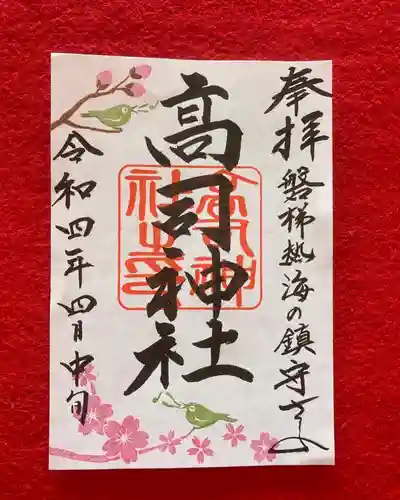 奉拝
磐梯熱海の鎮守さま
高司神社
令和四年四月中旬